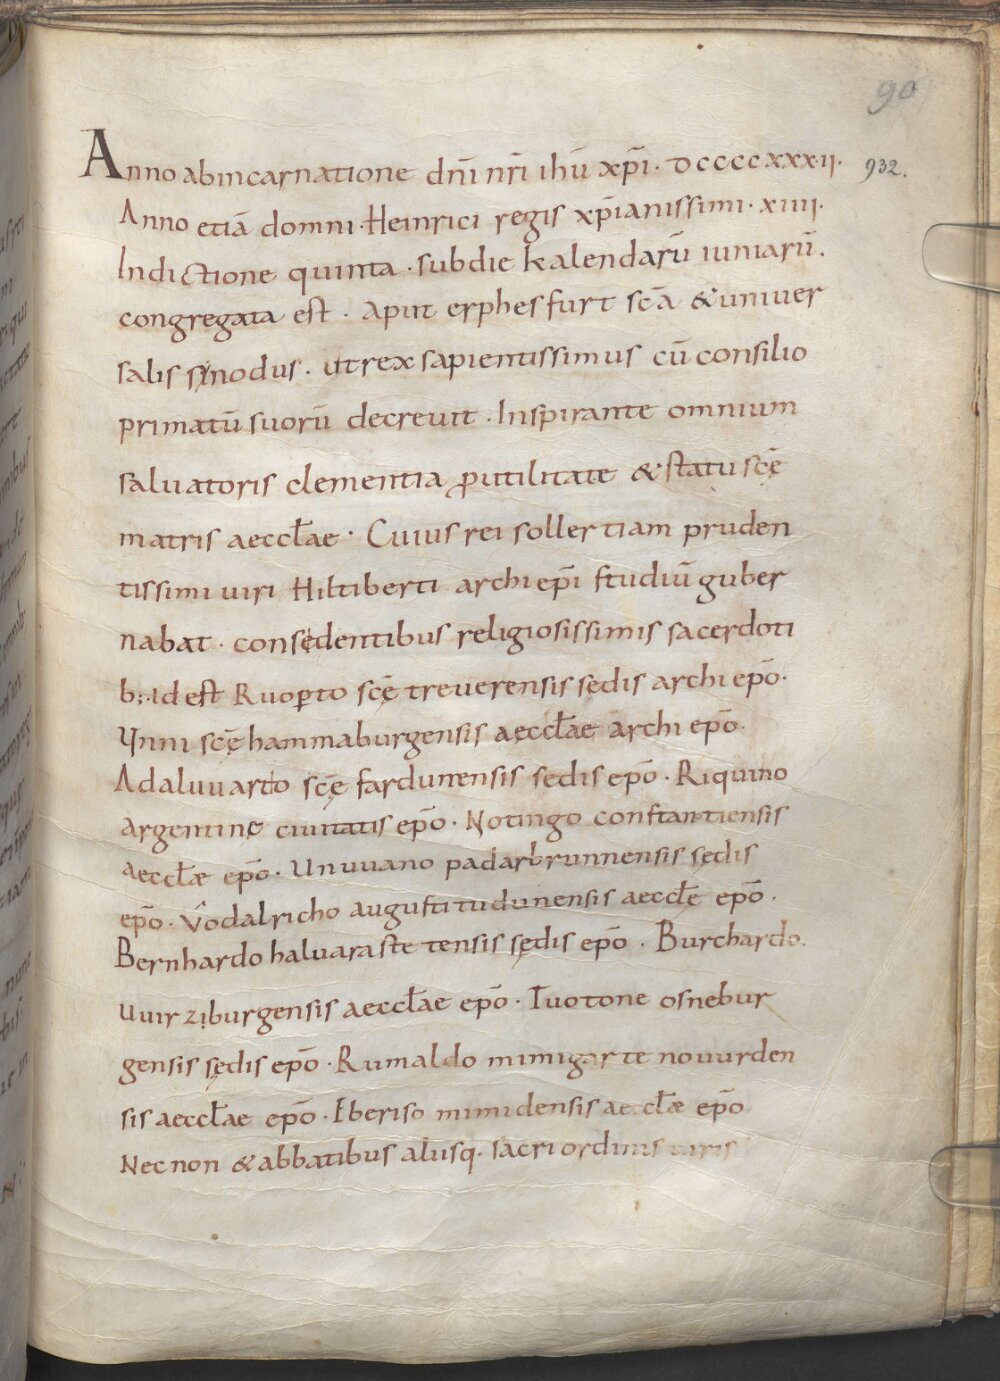 90
Anno abincarnatione dn̄i nr̄i ihū xp̄i · DCCCCXXXII · 932.
Anno etiā domni · Heinrici regis xp̄ianissimi · XIIII ·
Indictione quinta · subdie kalendarū iuniarū .
congregata est · Aput erphesfurt sc̄a & uniuer
salis sinodus . ut rex sapientissimus cū consilio
primatū suorū decreuit · Inspirante omnium
saluatoris clementia ꝓ utilitate & statu sc̄ę
matris aeccƚae · Cuius rei sollertiam pruden
tissimi uiri Hiltiberti archi ep̄i studiū guber
nabat · consedentibus religiosissimis sacerdoti
b; · id est Ruoꝑto sc̄ę treuerensis sędis archi ep̄o ·
Ynni sc̄ę hammaburgensis aeccƚae archi ep̄o ·
Adaluuarto sc̄ę fardunensis sedis ep̄o · Riquino
argentinę ciuitatis ep̄o · Notingo constantiensis
aeccƚæ ep̄o · Unuuano padarbrunnensis sędis
ep̄o · Vͦodalricho augusti tudunensis aeccƚe ep̄o ·
Bernhardo haluarastetensis sędis ep̄o · Burchardo
uuirziburgensis aeccƚae ep̄o · Tuotone osnebur
gensis sędis ep̄o · Rumaldo mimigartenouurden
sis aeccƚae ep̄o · Eberiso mimidensis aeccƚæ ep̄o
Nec non & abbatibus aliisq · sacri ordinis uiris